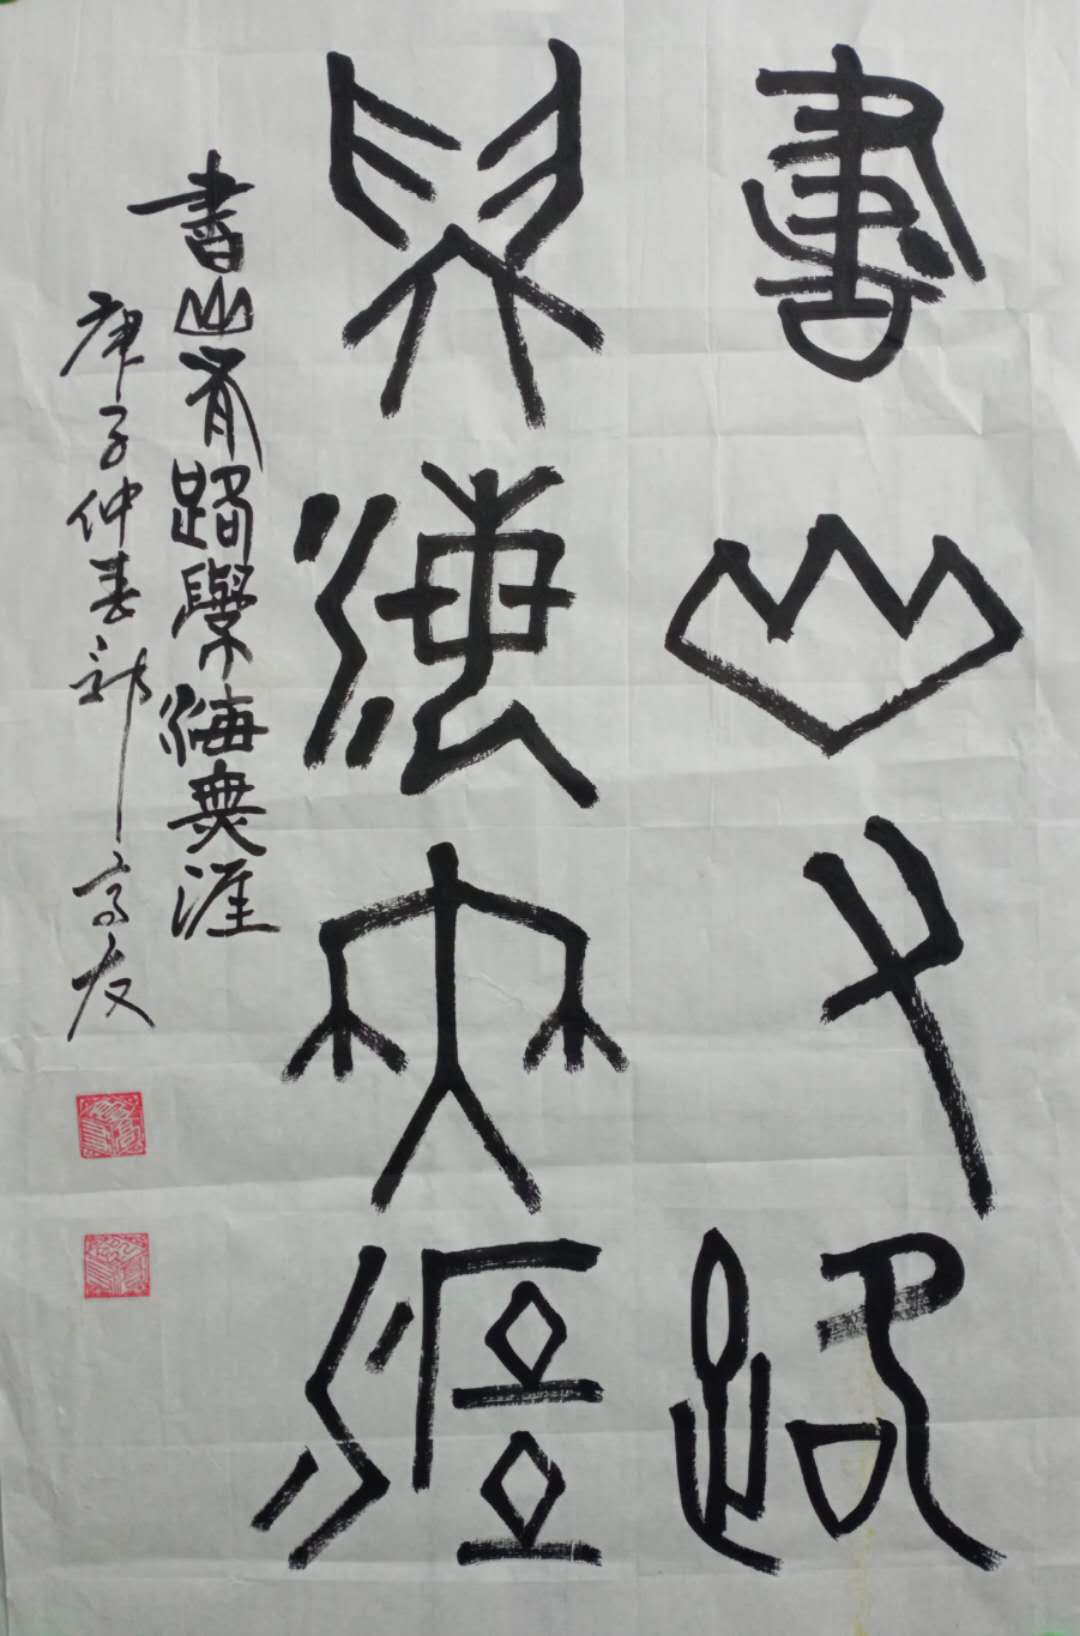 書山有路
學海無涯
書山有路學海無涯
庚子仲春
高友